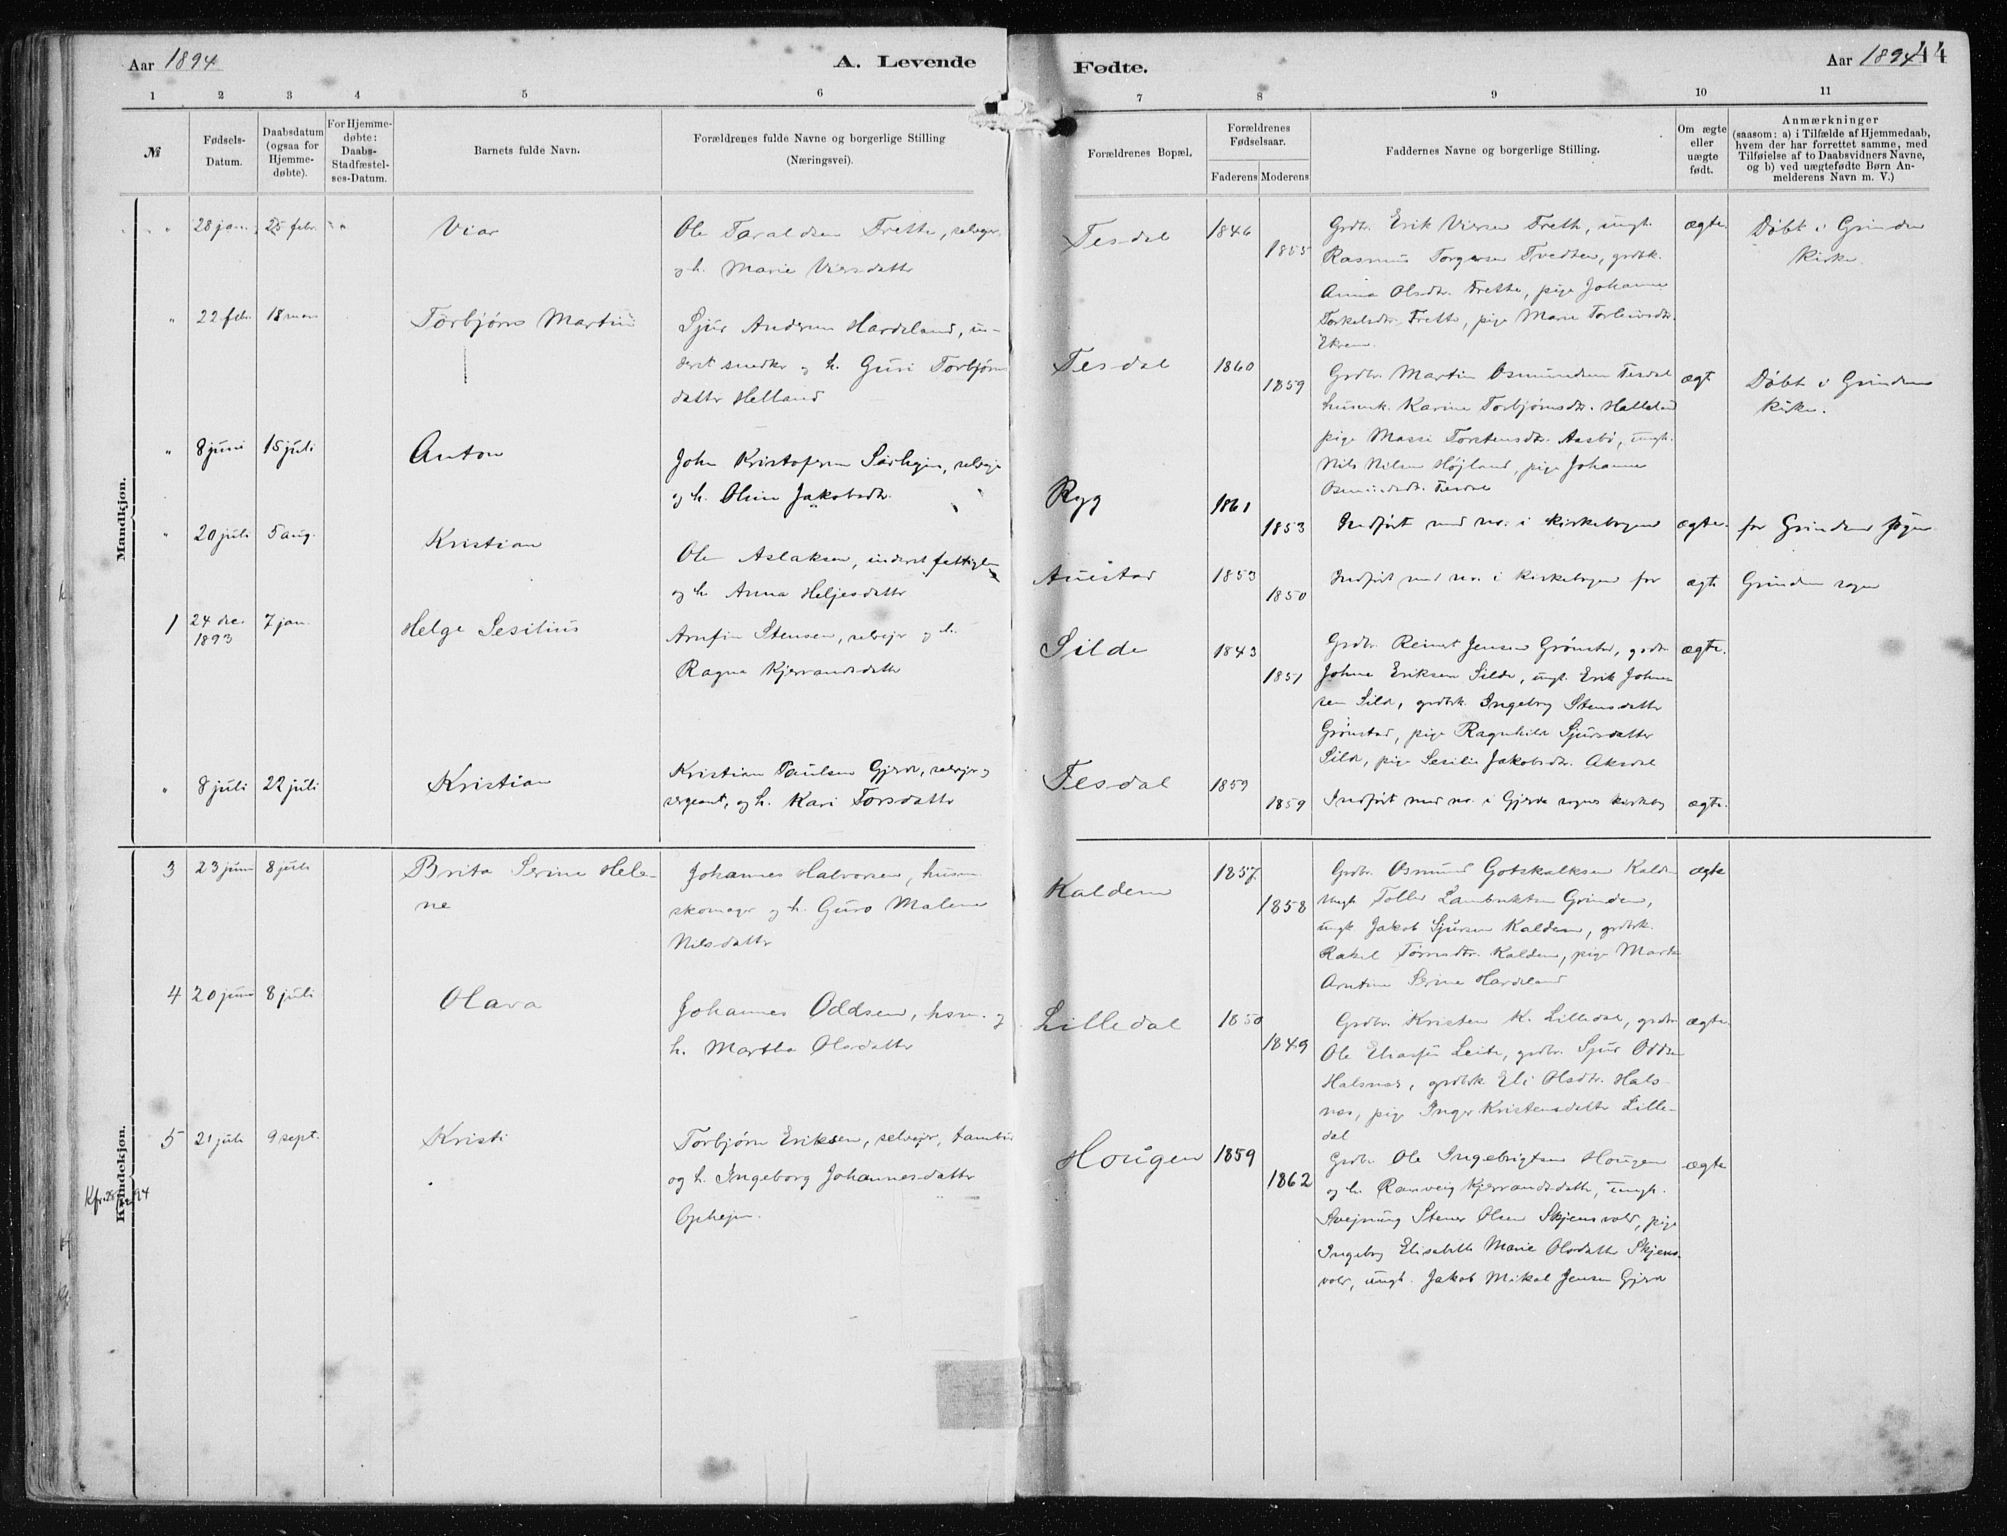 Aar 1894
A. Levende
Fødte.
Aar 1894
44
1 2 3 4 5 6 7 8 9 10 11
№
Fødsels-
Datum.
Daabsdatum
(ogsaa for
Hjemme-
døbte).
For Hjemme-
døbte:
Daabs-
Stadfæstel-
ses-Datum.
Barnets fulde Navn.
Forældrenes fulde Navne og borgerlige Stilling
(Næringsvei).
Forældrenes Bopæl.
Forældrenes
Fødselsaar.
Faderens Moderens
Faddernes Navne og borgerlige Stilling.
Om ægte
eller
uægte
født.
Anmærkninger
(saasom: a) i Tilfælde af Hjemmedaab,
hvem der har forrettet samme, med
Tilføielse af to Daabsvidners Navne,
og b) ved uægtefødte Børn An-
melderens Navn m. V.)
Mandkjøn.
" 28 jan. 25 febr. Viar
Ole Taraldsen Frette, selveier
og h. Marie Viersdatter
Tesdal
1846
1855
Grdbr. Erik Viersen Frette, ungk.
Rasmus Torgersen Tvedten, grdbk.
Anna Olsdtr. Frette, pige Johanne
Torkelsdtr. Frette, pige Marie Torleivsdtr.
Ekren
ægte.
Døbt i Grinden
Kirke.
" 22 feb. 18 mars Torbjørn Martin
Sjur Andersen Hardeland, in-
derst snedker og h. Guri Torbjørns
datter Helland
Tesdal
1860
1859
Grdbr. Martin Osmundsen Tesdal
husmk. Karine Torbjørnsdtr. Hallelad
pige Massi Torstensdtr. Aasbø, ungk.
Nils Nilsen Højland, pige Johanne
Osmundsdtr. Tesdal
ægt.
Døbt i Grindens
kirke.
" 8 juni 15 juli Anton
John Kristofersen, selveje
og h. Oline Jakobsdtr.
Ryg
1861
1853
Indført med no. i kirkebogen
ægte.
for Grindens sogn
" 20 juli 5 aug. Kristian
Ole Aslaksen, inderst fattiglem
og h. Anna Heljesdatter
Auestad
1853
1850
Indført med no. i kirkebogen for
ægte
Grinden sogn
1 24 dec. 1893 7 jan. Helge Sesilius
Arnfin Stensen, selvejer og h.
Ragna Kjerrandsdatter
Silde
1843
1851
Grdbr. Reinert Jensen Grønstad, grdbr
Johne Eriksen Silde, ungk. Erik Johne-
sen Silde, grdbrk. Ingeborg Stensdatter
Grønstad, pige Ragnhild Sjursdatter
Silde, pige Sesilie Jakobsdtr. Aksdal
ægte.
" 8 juli 22 juli Kristian
Kristian Paulsen Gjerde, selvejer og
sergeant, og h. Kari Torsdatter
Tesdal
1859
1859
Indført med no. i Gjerde sogns kirkebog
ægte.
Kvindekjøn.
3 23 juni 8 juli Brita Serine Hele-
ne
Johannes Halvorsen, husm.
skomager og h. Guro Malene
Nilsdatter
Kaldem
1857.
1858
Grdbr. Osmund Gotskalksen Kaldem
ungk. Tollev Lambrektsen Grinden,
ungk. Jakob Sjursen Kaldem, grdbrk.
Rakel Tørresdtr. Kaldem, pige Marta
Arntine Serine Hardeland
ægte
4 20 juni 8 juli Olava
Johannes Oddsen, hsm. og
h. Martha Olsdatter
Lilledal
1850
1849
Grdbr. Kristen K. Lilledal, grdbr
Ole Eliassen Leite, grdbr. Sjur Oddsen
Halsnæs, grdbrk Eli Olsdtr. Hals-
næs, pige Inger Kristensdatter Lille-
dal
ægte.
5 21 juli 9 sept. Kristi
Torbjørn Eriksen, selvejer, tambur
og h. Ingeborg Johannesdatter
Opheim.
Hougen
1859
1862
Grdbr. Ole Ingebrigtsen Hougen
og h. Ranveig Kjerrandsdatter, ungk.
Stener Olsen Skjensvold, pige
Ingeborg Elisabeth Marie Olsdatter Skjens-
vold, ungk. Jakob Mikal Jensen Gjerde
ægte